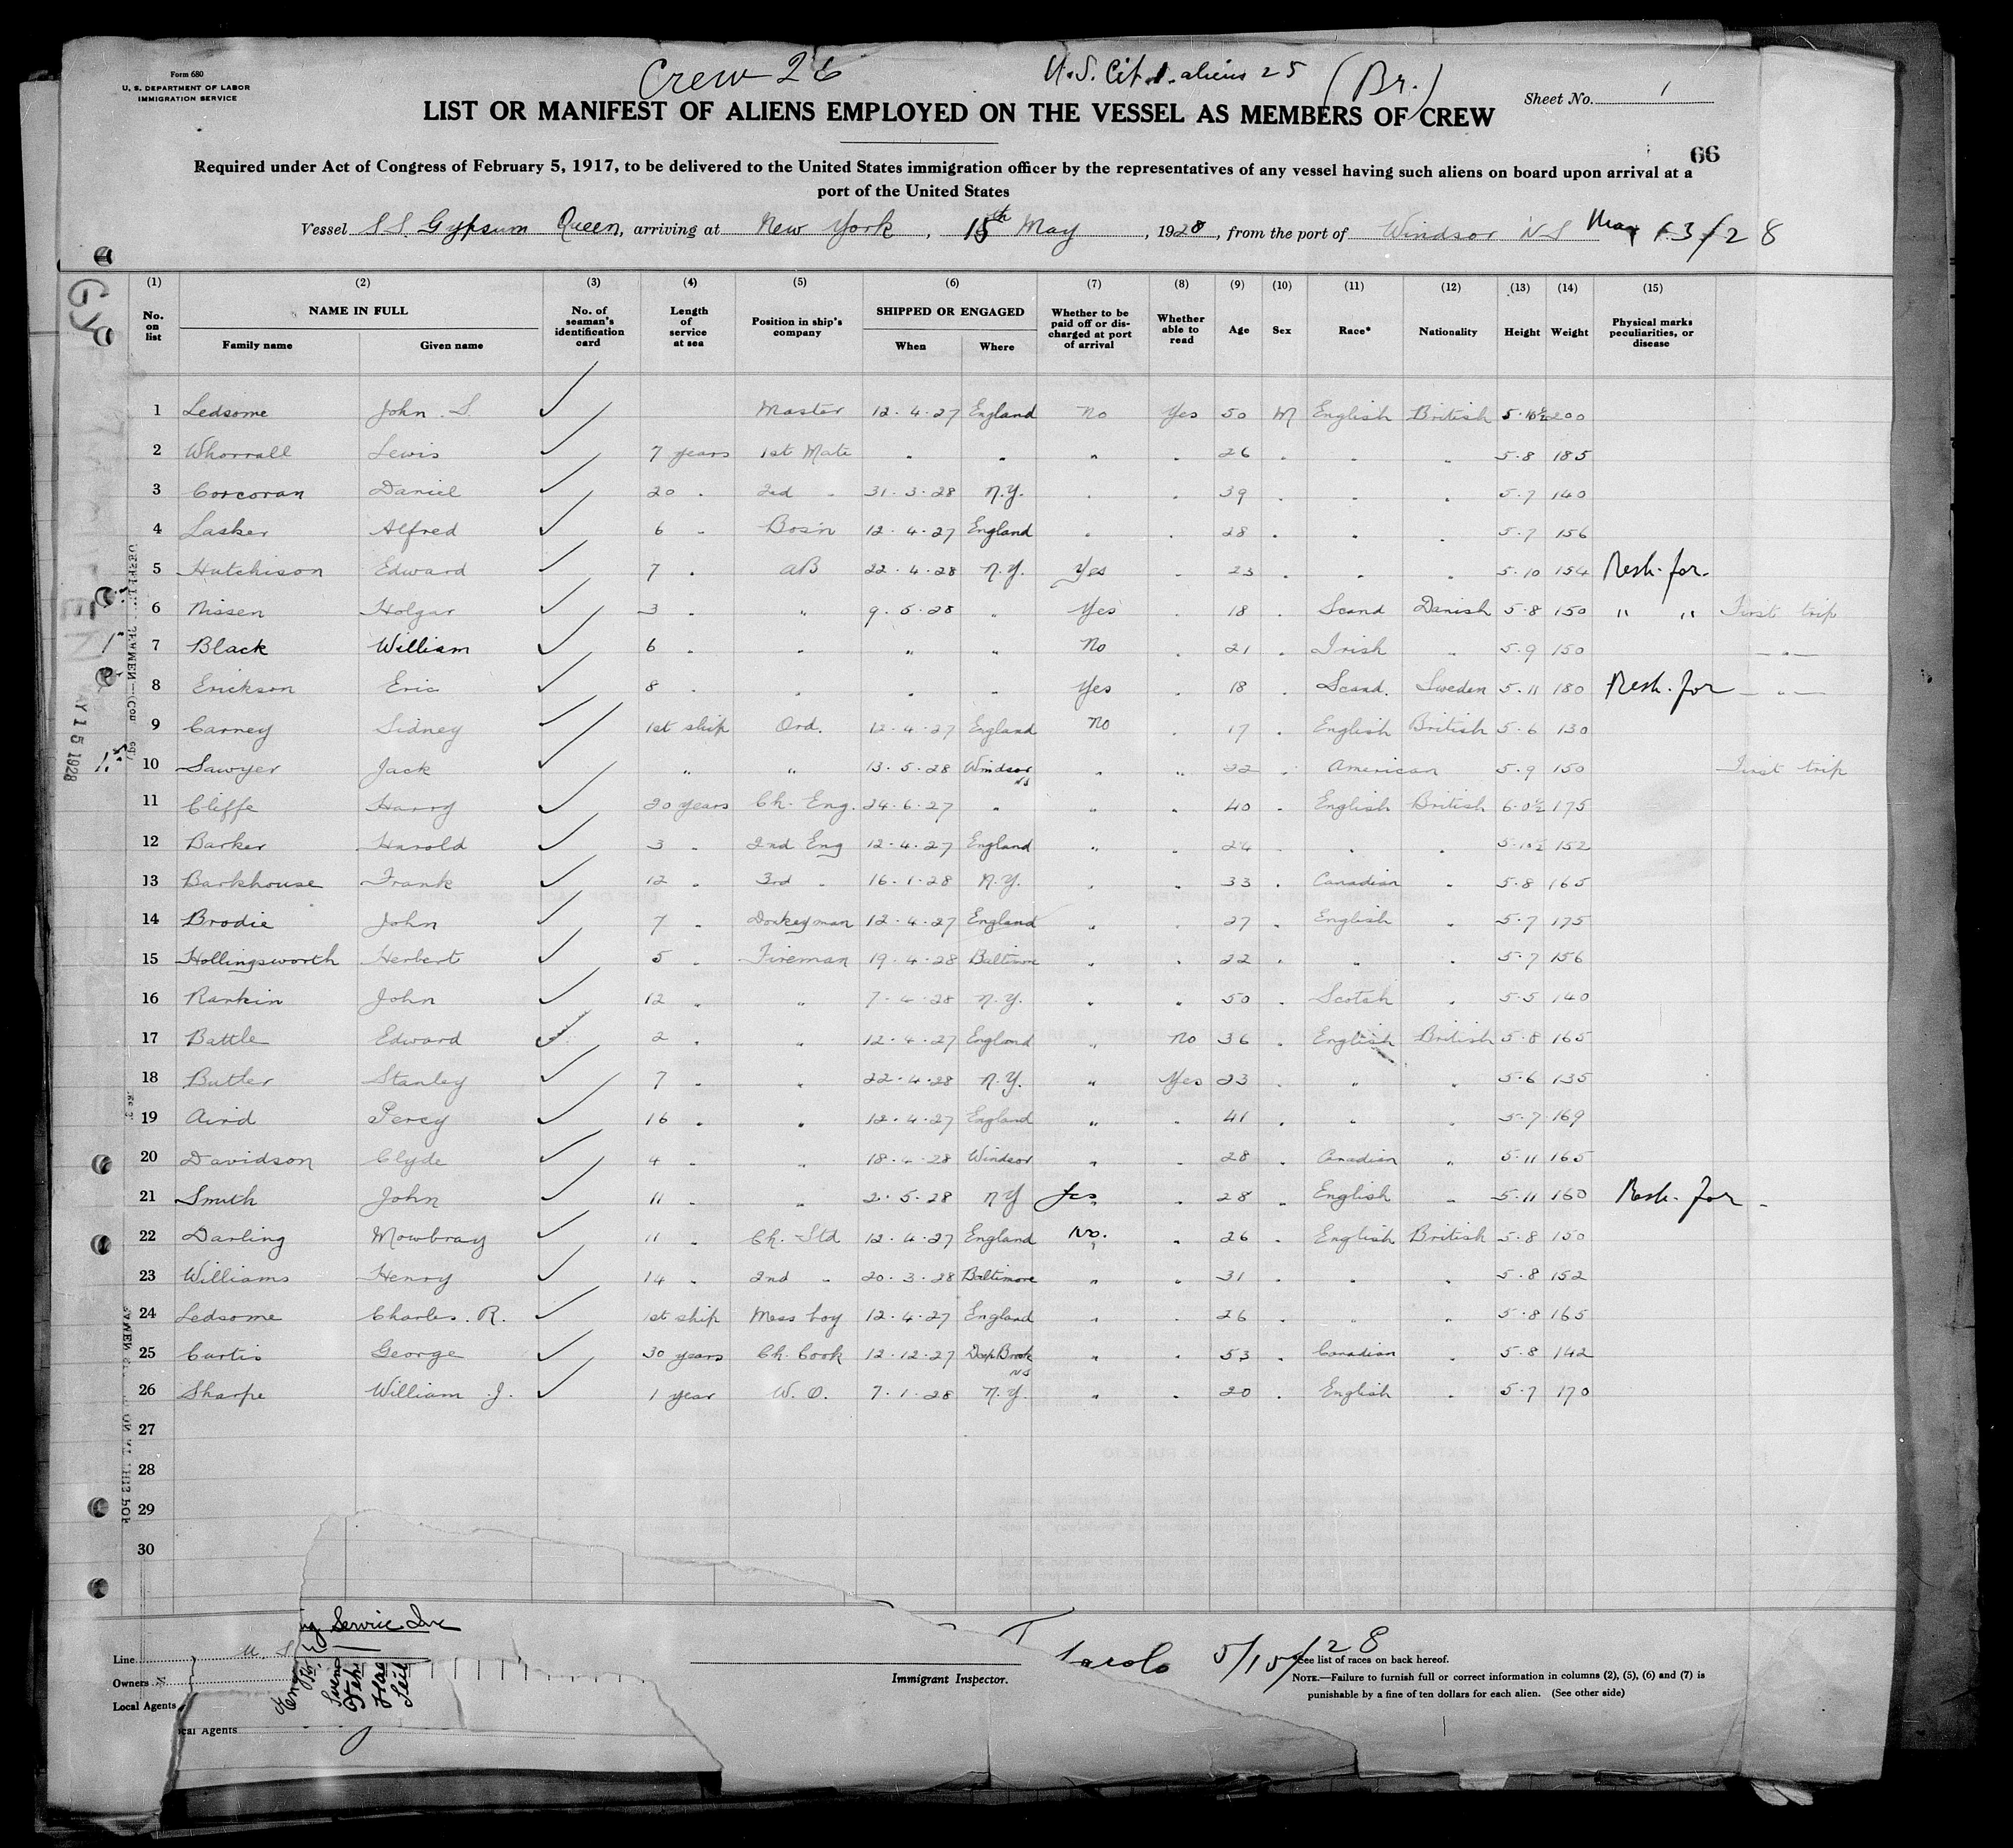 Form 680
U. S. DEPARTMENT OF LABOR
IMMIGRATION SERVICE
Crew 26
U.S. Cit. 1. aliens 25 (Br.)
Sheet No. 1
LIST OR MANIFEST OF ALIENS EMPLOYED ON THE VESSEL AS MEMBERS OF CREW
66
Required under Act of Congress of February 5, 1917, to be delivered to the United States immigration officer by the representatives of any vessel having such aliens on board upon arrival at a
port of the United States
Vessel S.S. Gypsum Queen, arriving at New York, 15th May, 1928, from the port of Windsor N S May 13/28
(1) (2) (3) (4) (5) (6) (7) (8) (9) (10) (11) (12) (13) (14) (15)
No. on list NAME IN FULL Family name Given name No. of seaman's identification card Length of service at sea Position in ship's company SHIPPED OR ENGAGED When Where Whether to be paid off or discharged at port of arrival Whether able to read Age Sex Race* Nationality Height Weight Physical marks peculiarities, or disease
1 Ledsome John S. ✓ Master 12.4.27 England No Yes 50 M English British 5.10½ 200
2 Whorrall Lewis ✓ 7 years 1st Mate " " " " 26 " " " 5.8 185
3 Corcoran Daniel ✓ 20 " 2nd " 31.3.28 N.Y. " " 39 " " " 5.7 140
4 Lasker Alfred ✓ 6 " Bosn 12.4.27 England " " 28 " " " 5.7 156
5 Hutchison Edward ✓ 7 " AB 22.4.28 N.Y. Yes " 23 " " " 5.10 154 Resh. for.
6 Nissen Holgar ✓ 3 " " 9.5.28 " Yes " 18 " Scand Danish 5.8 150 " " First trip
7 Black William ✓ 6 " " " " No " 21 " Irish " 5.9 150 — " —
8 Erickson Eric ✓ 8 " " " " Yes " 18 " Scand. Sweden 5.11 180 Resh. for — " —
9 Carney Sidney ✓ 1st ship Ord. 12.4.27 England No " 17 " English British 5.6 130
10 Sawyer Jack ✓ " " 13.5.28 Windsor NS " " 22 " American 5.9 150 First trip
11 Cliffe Harry ✓ 20 years Ch. Eng. 24.6.27 " " " 40 " English British 6.0½ 175
12 Barker Harold ✓ 3 " 2nd Eng 12.4.27 England " " 24 " " " 5.10½ 152
13 Barkhouse Frank ✓ 12 " 3rd " 16.1.28 N.Y. " " 33 " Canadian " 5.8 165
14 Brodie John ✓ 7 " Donkeyman 12.4.27 England " " 27 " English " 5.7 175
15 Hollingsworth Herbert ✓ 5 " Fireman 19.4.28 Baltimore " " 22 " " " 5.7 156
16 Rankin John ✓ 12 " " 7.4.28 N.Y. " " 50 " Scotch " 5.5 140
17 Battle Edward ✓ 2 " " 12.4.27 England " No 36 " English British 5.8 165
18 Butler Stanley ✓ 7 " " 22.4.28 N.Y. " Yes 23 " " " 5.6 135
19 Aird Percy ✓ 16 " " 12.4.27 England " " 41 " " " 5.7 169
20 Davidson Clyde ✓ 4 " " 18.4.28 Windsor " " 28 " Canadian " 5.11 165
21 Smith John ✓ 11 " " 2.5.28 N.Y Yes " 28 " English " 5.11 160 Resh. for
22 Darling Mowbray ✓ 11 " Ch. Std 12.4.27 England No. " 26 " English British 5.8 150
23 Williams Henry ✓ 14 " 2nd " 20.3.28 Baltimore " " 31 " " " 5.8 152
24 Ledsome Charles. R. ✓ 1st ship Mess boy 12.4.27 England " " 26 " " " 5.8 165
25 Curtis George ✓ 30 years Ch. Cook 12.12.27 Deep Brook NS " " 53 " Canadian " 5.8 142
26 Sharpe William J. ✓ 1 year W. O. 7.1.28 N.Y. " " 20 " English " 5.7 170
27
28
29
30
MAY 15 1928
Service Inc
Line
Owners
Local Agents
cal Agents
Immigrant Inspector.
5/15/28
See list of races on back hereof.
NOTE.—Failure to furnish full or correct information in columns (2), (5), (6) and (7) is
punishable by a fine of ten dollars for each alien. (See other side)